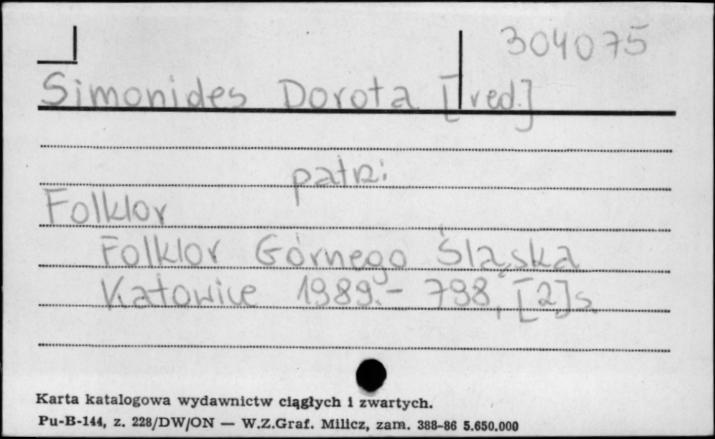 304075
Simonides Dorota [red.]
patrz:
Folklor
Folklor Górnego Śląska
Katowice 1989.- 798, [2]s.
Karta katalogowa wydawnictw ciągłych i zwartych.
Pu-B-144, z. 228/DW/ON — W.Z.Graf. Milicz, zam. 388-86 5.650.000